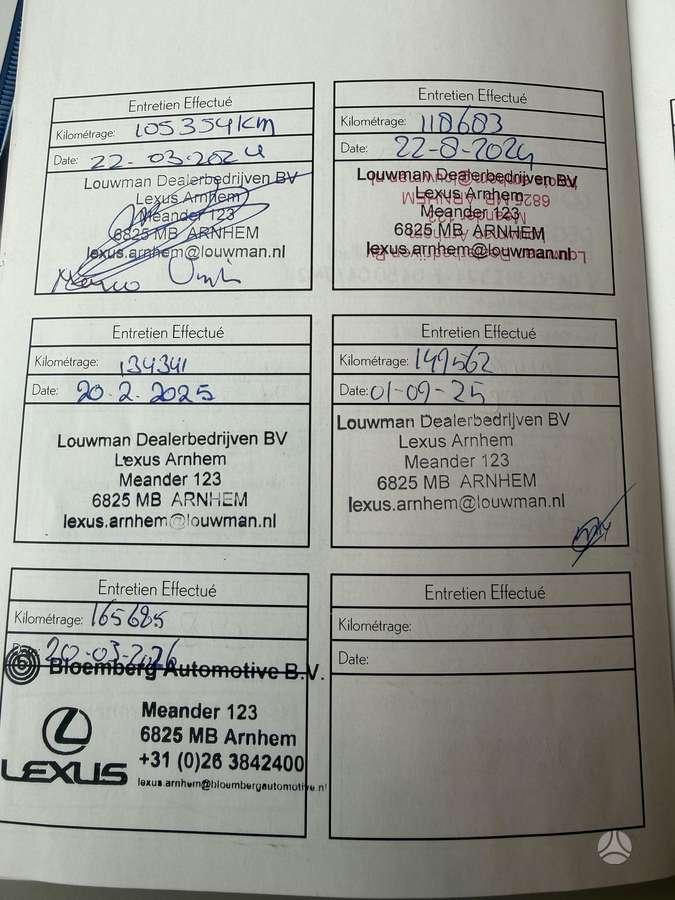 Entretien Effectué
Kilométrage: 105354KM
Date: 22-03-2024
Louwman Dealerbedrijven BV
Lexus Arnhem
Meander 123
6825 MB ARNHEM
lexus.arnhem@louwman.nl
Entretien Effectué
Kilométrage: 118683
Date: 22-8-2024
Louwman Dealerbedrijven BV
Lexus Arnhem
Meander 123
6825 MB ARNHEM
lexus.arnhem@louwman.nl
Entretien Effectué
Kilométrage: 134341
Date: 20.2.2025
Louwman Dealerbedrijven BV
Lexus Arnhem
Meander 123
6825 MB ARNHEM
lexus.arnhem@louwman.nl
Entretien Effectué
Kilométrage: 149562
Date: 01-09-25
Louwman Dealerbedrijven BV
Lexus Arnhem
Meander 123
6825 MB ARNHEM
lexus.arnhem@louwman.nl
Entretien Effectué
Kilométrage: 165685
Date: 20-03-2026
Bloemberg Automotive B.V.
LEXUS
Meander 123
6825 MB Arnhem
+31 (0)26 3842400
lexus.arnhem@bloembergautomotive.nl
Entretien Effectué
Kilométrage:
Date: